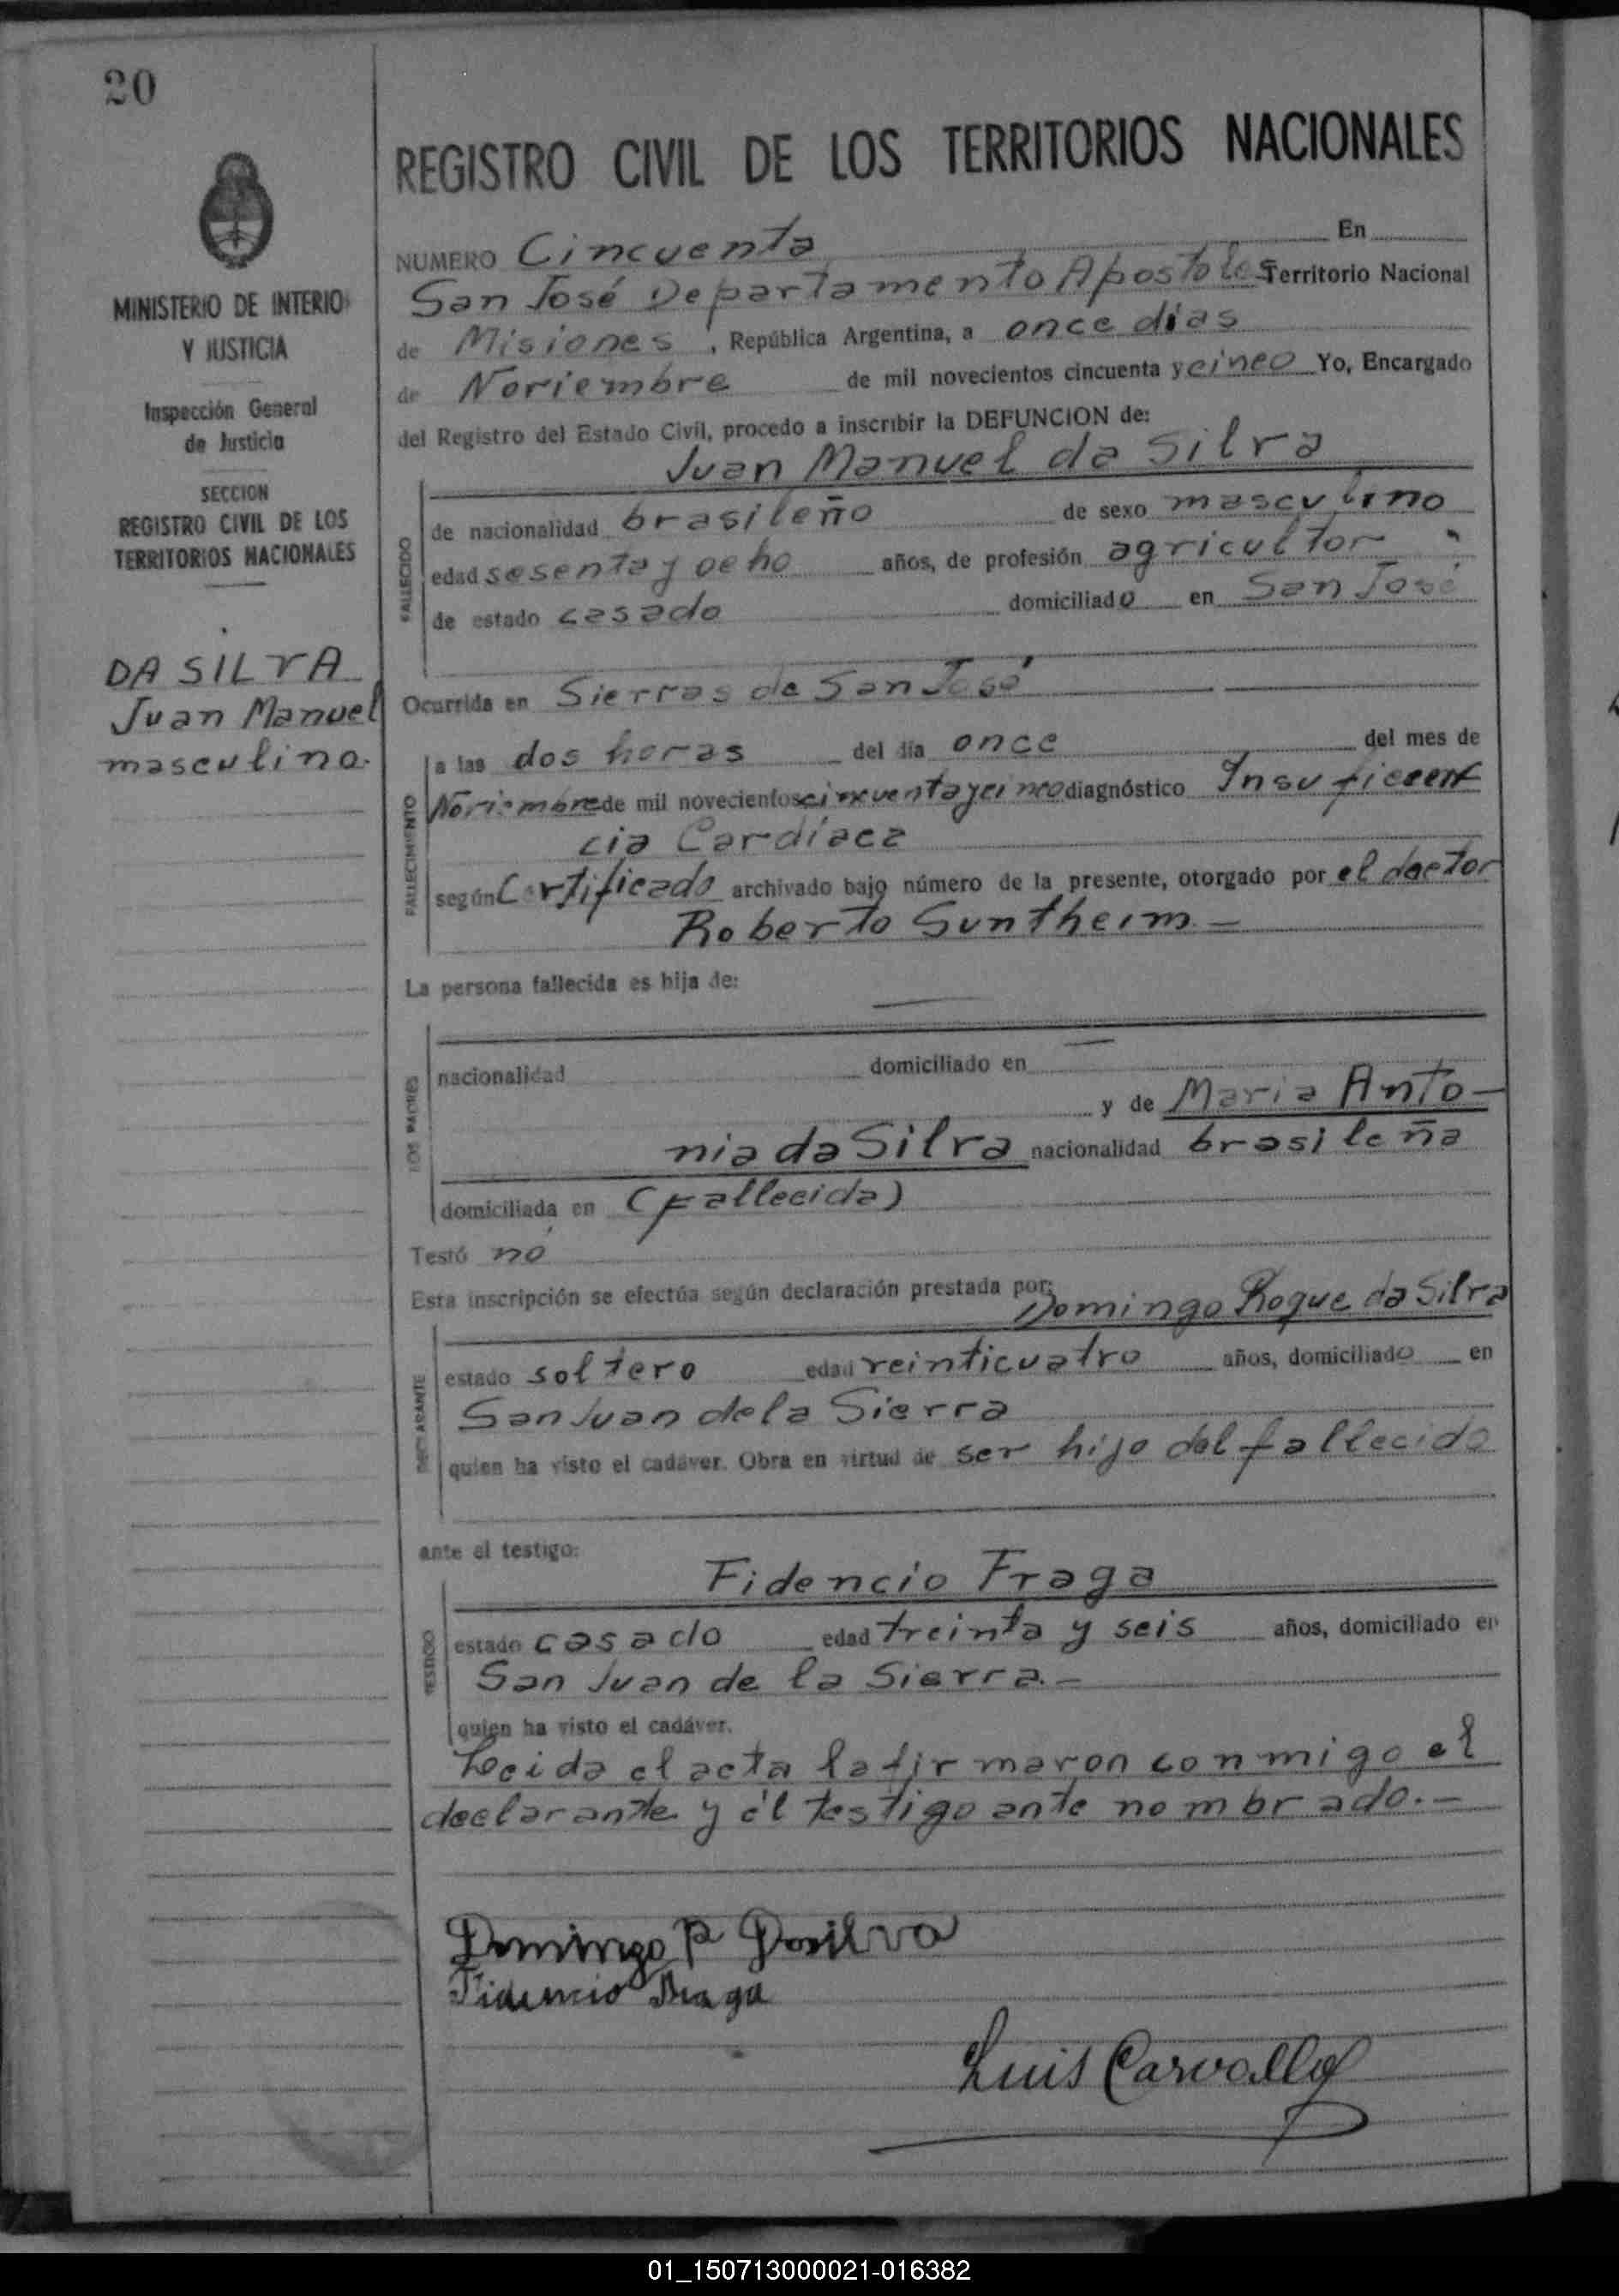 20
REGISTRO CIVIL DE LOS TERRITORIOS NACIONALES
MINISTERIO DE INTERIOR
Y JUSTICIA
Inspección General
de Justicia
SECCION
REGISTRO CIVIL DE LOS
TERRITORIOS NACIONALES
DA SILVA
Juan Manuel
masculino.
NUMERO Cincuenta En
San José Departamento Apostoles Territorio Nacional
de Misiones, República Argentina, a once dias
de Noviembre de mil novecientos cincuenta y cinco Yo, Encargado
del Registro del Estado Civil, procedo a inscribir la DEFUNCION de:
Juan Manuel da Silva
FALLECIDO
de nacionalidad brasileño de sexo masculino
edad sesenta y ocho años, de profesión agricultor
de estado casado domiciliado en San José
Ocurrida en Sierras de San José
FALLECIMIENTO
a las dos horas del día once del mes de
Noviembre de mil novecientos cincuenta y cinco diagnóstico
cia Cardíaca
según Certificado archivado bajo número de la presente, otorgado por el doctor
Roberto Suntheim.-
La persona fallecida es hija de:
LOS PADRES
nacionalidad domiciliado en
y de Maria Anto-
nia da Silva nacionalidad brasileña
domiciliada en (Fallecida)
Testó nó
Esta inscripción se efectúa según declaración prestada por:
Domingo Roque da Silva
DECLARANTE
estado soltero edad veinticuatro años, domiciliado en
San Juan de la Sierra
quien ha visto el cadáver. Obra en virtud de ser hijo del fallecido
ante el testigo:
Fidencio Fraga
TESTIGO
estado casado edad treinta y seis años, domiciliado en
San Juan de la Sierra.-
quien ha visto el cadáver.
Leida el acta la firmaron conmigo el
declarante y él testigo ante nombrado.-
Domingo R Dasilva
Fidencio Fraga
Luis Carvallo
01_150713000021-016382